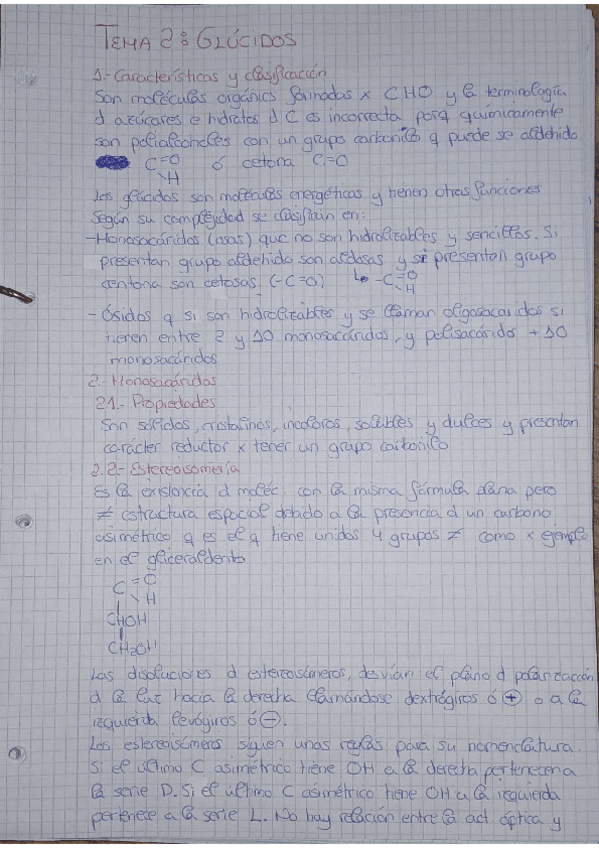 TEMA 2: GLÚCIDOS
1.- Características y clasificación
Son moléculas orgánics formadas x CHO y la terminología
d azúcares e hidratos d C es incorrecta porq químicamente
son polialcoholes con un grupo carbonilo q puede se aldehido
C=O ó cetona C=O
H
Los glúcidos son moléculas energéticas y tienen otras funciones
Según su complejidad se clasifican en:
-Monosacáridos (osas) que no son hidrolizables y sencillos. Si
presentan grupo aldehido son aldosas y si presentan grupo
centona son cetosas. (-C=O) ↳ -C=O
H
- Ósidos q si son hidrolizables y se llaman oligosacaridos si
tienen entre 2 y 10 monosacáridos, y polisacáridos + 10
monosacáridos
2.- Monosacáridos
2.1.- Propiedades
Son sólidos, cristalinos, incoloros, solubles y dulces y presentan
carácter reductor x tener un grupo carbonilo
2.2.- Estereoisomería
Es la existencia d moléc. con la misma fórmula plana pero
≠ estructura espacial debido a la presencia d un carbono
asimétrico q es el q tiene unidos 4 grupos ≠ como x ejemplo
en el gliceraldehido
C=O
H
CHOH
CH₂OH
Las disoluciones d estereoisómeros, desvían el plano d polarización
d la luz hacia la derecha llamándose dextrógiros ó ⊕ o a la
izquierda levógiros ó ⊖.
Los estereoisómeros siguen unas reglas para su nomenclatura.
Si el último C asimétrico tiene OH a la derecha pertenecen a
la serie D. Si el último C asimétrico tiene OH a la izquierda
pertenece a la serie L. No hay relación entre la act. óptica y